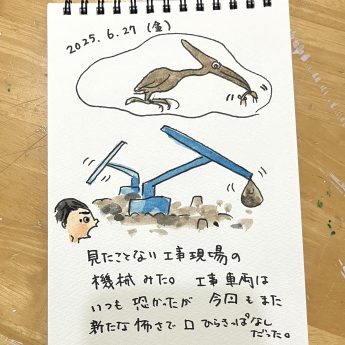 2025.6.27 (金)
見たことない工事現場の
機械みた。工事車両は
いつも恐かったが 今回もまた
新たな怖さで口ひらきっぱなし
だった。